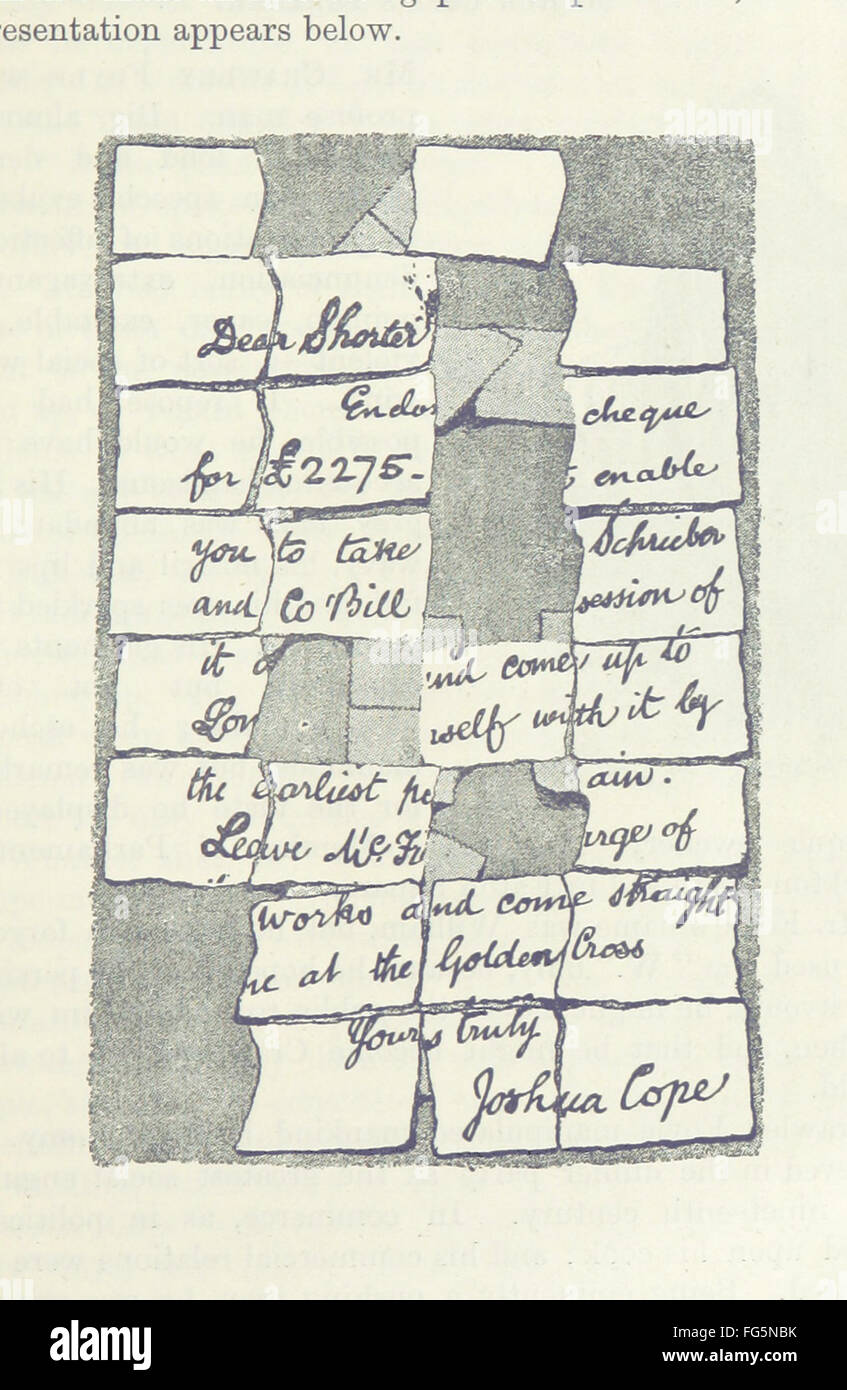 resentation appears below.
Dear Shorter
Endo cheque
for £2275- enable
you to take Schrieber
and Co Bill session of
it and come up to
Lon rself with it by
the earliest po ain.
Leave Mc. Fu arge of
works and come straight
ne at the Golden Cross
Yours truly
Joshua Cope
alamy
alamy
Image ID: FG5NBK
www.alamy.com